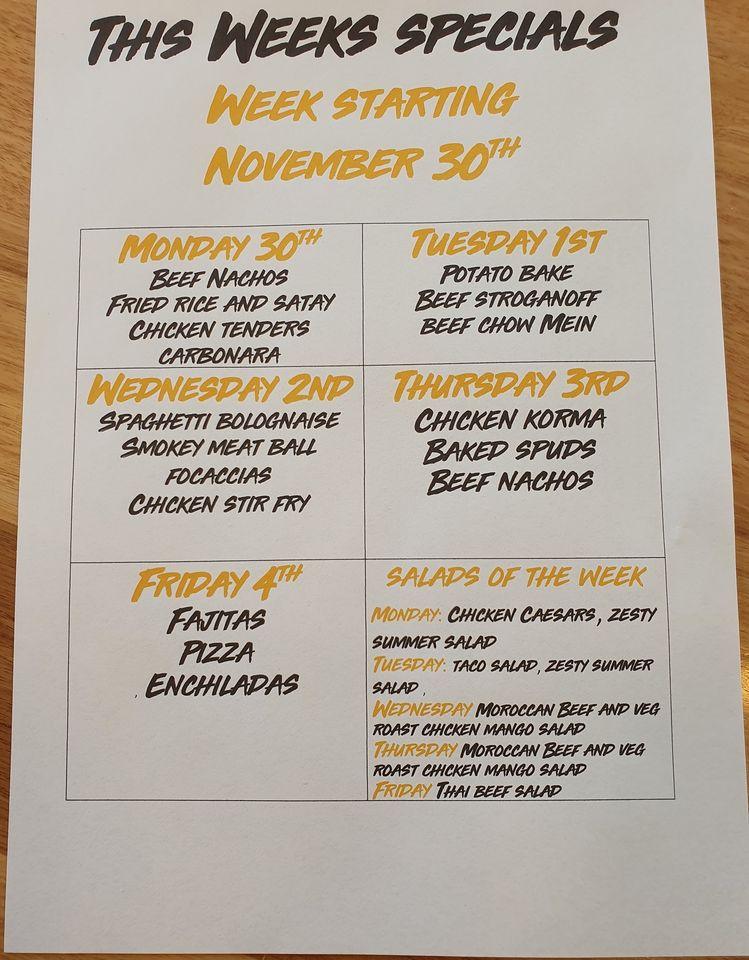 THIS WEEKS SPECIALS
WEEK STARTING
NOVEMBER 30TH
MONDAY 30TH
BEEF NACHOS
FRIED RICE AND SATAY
CHICKEN TENDERS
CARBONARA
TUESDAY 1ST
POTATO BAKE
BEEF STROGANOFF
BEEF CHOW MEIN
WEDNESDAY 2ND
SPAGHETTI BOLOGNAISE
SMOKEY MEAT BALL
FOCACCIAS
CHICKEN STIR FRY
THURSDAY 3RD
CHICKEN KORMA
BAKED SPUDS
BEEF NACHOS
FRIDAY 4TH
FAJITAS
PIZZA
. ENCHILADAS
SALADS OF THE WEEK
MONDAY: CHICKEN CAESARS, ZESTY
SUMMER SALAD
TUESDAY: TACO SALAD, ZESTY SUMMER
SALAD ,
WEDNESDAY MOROCCAN BEEF AND VEG
ROAST CHICKEN MANGO SALAD
THURSDAY MOROCCAN BEEF AND VEG
ROAST CHICKEN MANGO SALAD
FRIDAY THAI BEEF SALAD